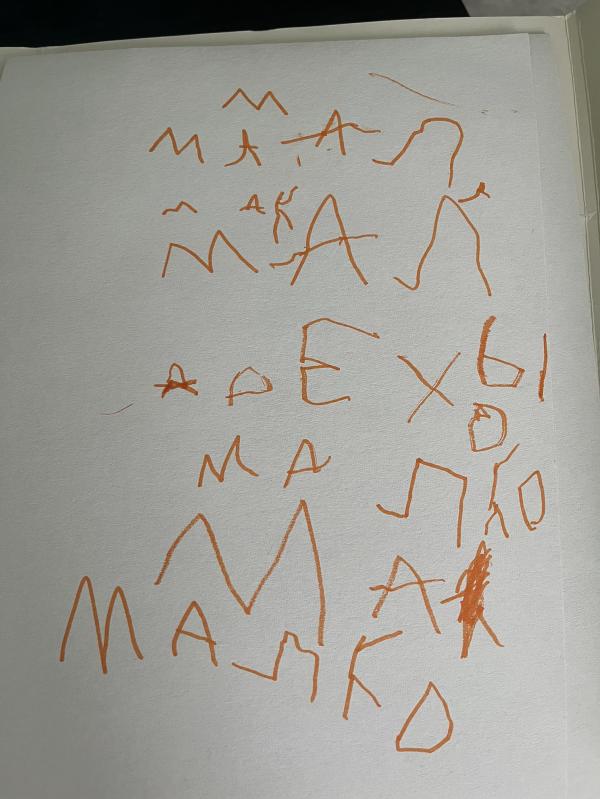 М
МААЛ
М АК А
МАЛ
АДЕХЫ
О
МАЛКО
МАК
МАЛКО